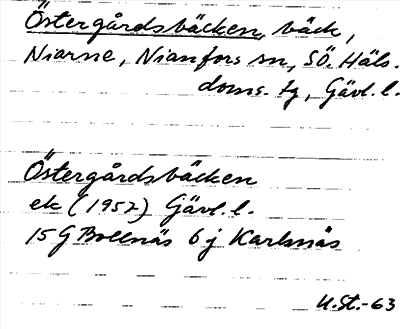 Östergårdsbäcken, bäck,
Niarne, Nianfors sn, SÖ. Häls.
doms. tg, Gävl. l.
Östergårdsbäcken
ek (1957) Gävl. l.
15 G Bollnäs 6 j Karlsnäs
U.St.-63